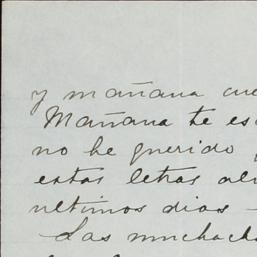 y mañana
Mañana te
no he querido
estas letras
ultimos dias
Las